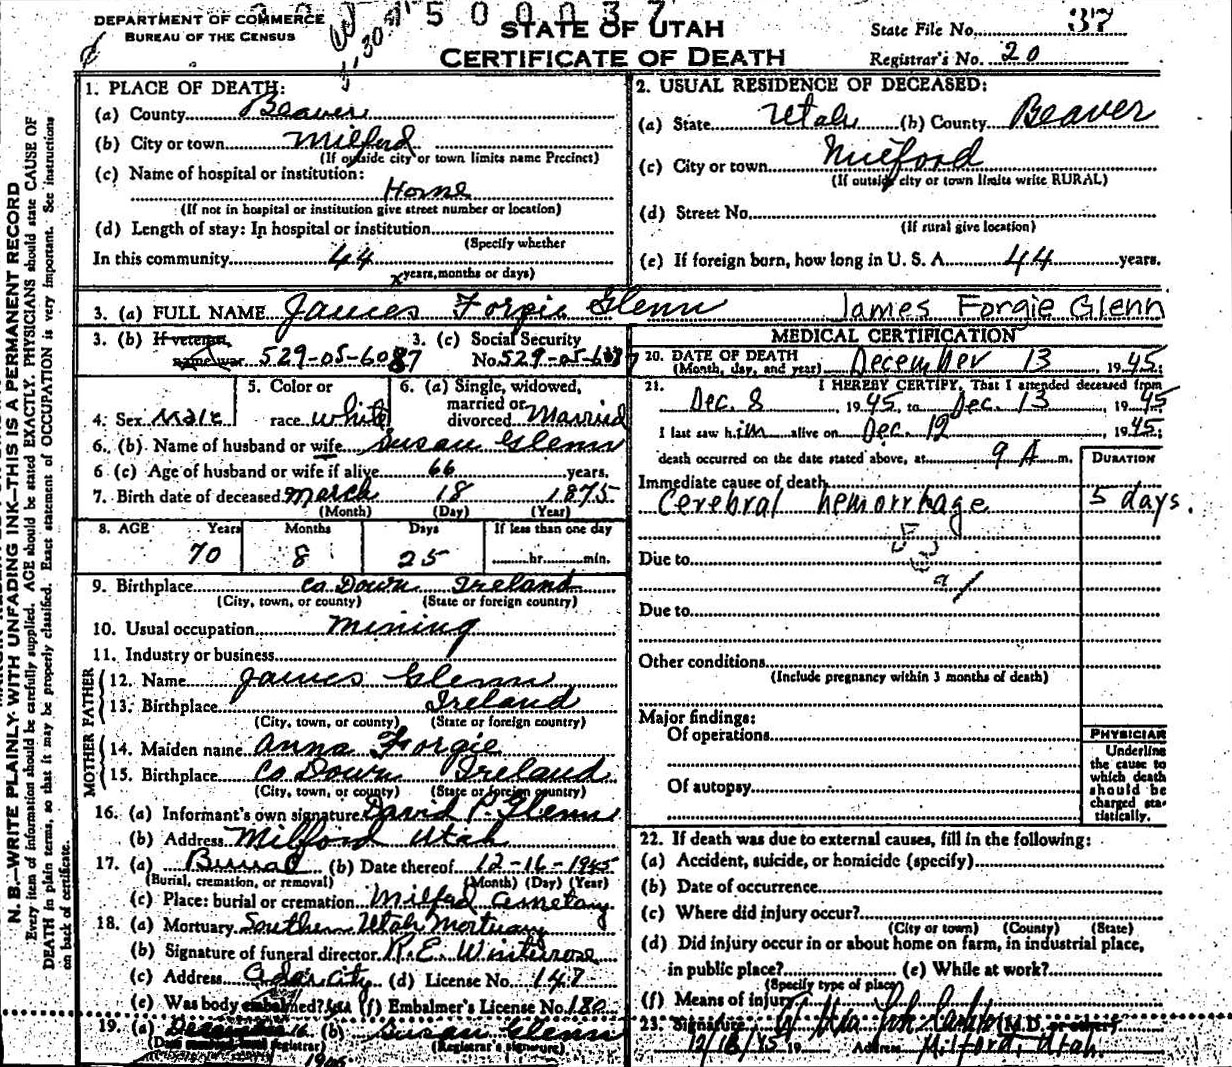 DEPARTMENT OF COMMERCE
BUREAU OF THE CENSUS
500037
STATE OF UTAH
CERTIFICATE OF DEATH
State File No. 37
Registrar's No. 20
N. B.—WRITE PLAINLY WITH UNFADING INK—THIS IS A PERMANENT RECORD
Every item of information should be carefully supplied. AGE should be stated EXACTLY. PHYSICIANS should state CAUSE OF
DEATH in plain terms, so that it may be properly classified. Exact statement of OCCUPATION is very important. See instructions
on back of certificate.
1. PLACE OF DEATH:
(a) County Beaver
(b) City or town Milford
(If outside city or town limits name Precinct)
(c) Name of hospital or institution:
Home
(If not in hospital or institution give street number or location)
(d) Length of stay: In hospital or institution
(Specify whether
In this community 44
years, months or days)
2. USUAL RESIDENCE OF DECEASED:
(a) State Utah (b) County Beaver
(c) City or town Milford
(If outside city or town limits write RURAL)
(d) Street No.
(If rural give location)
(e) If foreign born, how long in U. S. A. 44 years.
3. (a) FULL NAME James Forgie Glenn James Forgie Glenn
3. (b) If veteran, name war 529-05-6087
3. (c) Social Security No. 529-05-6087
4. Sex Male
5. Color or race white
6. (a) Single, widowed, married or divorced Married
6. (b) Name of husband or wife Susan Glenn
6 (c) Age of husband or wife if alive 66 years.
7. Birth date of deceased March 18 1875
(Month) (Day) (Year)
8. AGE Years Months Days If less than one day
70 8 25 hr. min.
9. Birthplace Co Down Ireland
(City, town, or county) (State or foreign country)
10. Usual occupation Mining
11. Industry or business
FATHER
12. Name James Glenn
13. Birthplace Ireland
(City, town, or county) (State or foreign country)
MOTHER
14. Maiden name Anna Forgie
15. Birthplace Co Down Ireland
(City, town, or county) (State or foreign country)
16. (a) Informant's own signature David P. Glenn
(b) Address Milford Utah
17. (a) Burial (b) Date thereof 12-16-1945
(Burial, cremation, or removal) (Month) (Day) (Year)
(c) Place: burial or cremation Milford Cemetary
18. (a) Mortuary Southern Utah Mortuary
(b) Signature of funeral director R. E. Winterose
(c) Address Cedar City (d) License No. 147
(e) Was body embalmed? (f) Embalmer's License No. 180
19. (a) December 16 (b) Susan Glenn
(Registrar's signature)
MEDICAL CERTIFICATION
20. DATE OF DEATH
(Month, day, and year) December 13, 1945
21. I HEREBY CERTIFY, That I attended deceased from
Dec. 8, 1945, to Dec. 13 1945
I last saw him alive on Dec. 12 1945;
death occurred on the date stated above, at 9 A m.
DURATION
Immediate cause of death
Cerebral hemorrhage 5 days.
Due to
Due to
Other conditions
(Include pregnancy within 3 months of death)
Major findings:
Of operations
Of autopsy
PHYSICIAN
Underline
the cause to
which death
should be
charged sta-
tistically.
22. If death was due to external causes, fill in the following:
(a) Accident, suicide, or homicide (specify)
(b) Date of occurrence
(c) Where did injury occur?
(City or town) (County) (State)
(d) Did injury occur in or about home on farm, in industrial place,
in public place? (e) While at work?
(Specify type of place)
(f) Means of injury
23. Signature M.D. or other
Address Milford, Utah.